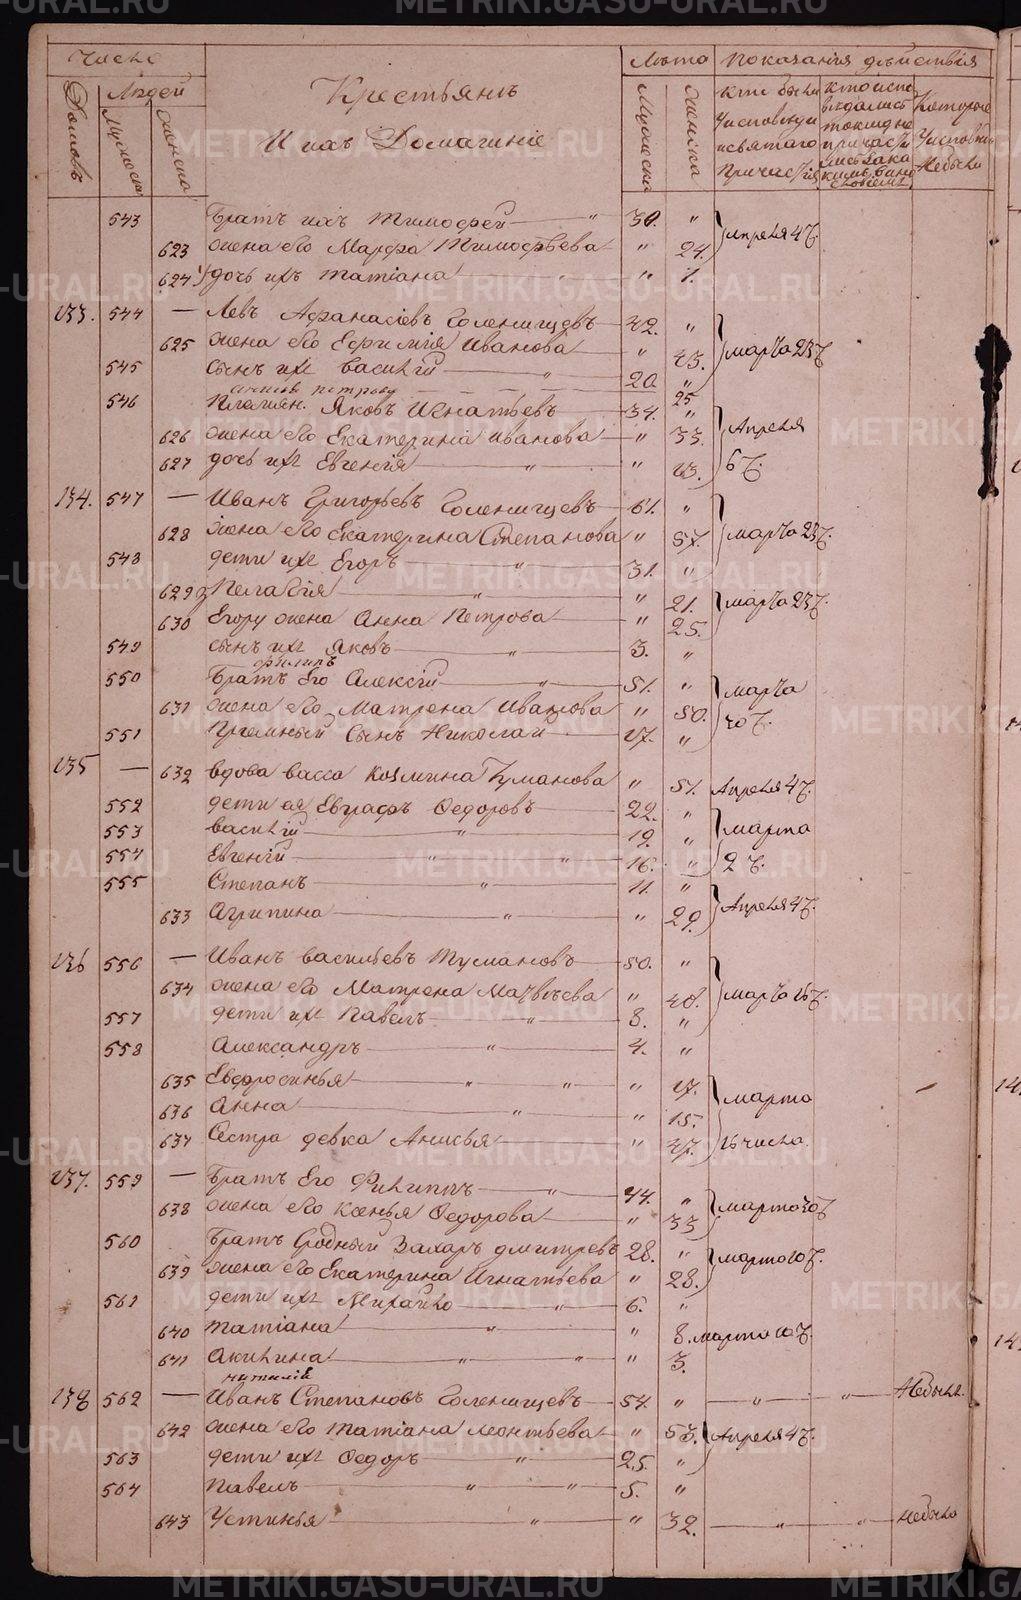 Число
Домовъ
Людей
Мужеска
Женска
Крестьянъ
И ихъ Домашние
Лѣта
Мужеска
Женска
Показанія дѣйствія
Кто были у исповѣди и святаго причастія
Которые у исповѣди не были
543 Братъ ихъ Тимофей — " 30. " Апреля 4 ч.
623 жена его Марфа Тимофѣева " 24.
624 дочь ихъ Татіана — " " 1.
133. 544 — Левъ Афанасіевъ Голенищевъ 42. " Марта 23 ч.
625 жена его Ефимія Иванова — " 43.
545 сынъ ихъ Василій — " 20. "
25
546 Племян. Яковъ Игнатьевъ — 34. " Апреля
626 жена его Екатерина Иванова — " 33.
627 дочь ихъ Евгенія — " " 13. 6 ч.
134. 547 — Иванъ Григорьевъ Голенищевъ 61. "
628 жена его Екатерина Степанова " 57. Марта 23 ч.
548 дети ихъ Егоръ — " 31. "
629 Пелагія — " " 21. Марта 23 ч.
630 Егору жена Анна Петрова — " 25.
549 сынъ ихъ Яковъ — " 3. "
филипъ
550 Братъ Его Алексій — " 51. " Марта
631 жена его Матрена Иванова " 50. 30 ч.
551 Приемный Сынъ Николай 17. "
135 — 632 вдова Васса Козмина Туманова " 51. Апреля 4 ч.
552 дети ея Евграфъ Федоровъ — 22. "
553 Василій — " 19. " Марта
554 Евгеній — " — " 16. " 2 ч.
555 Степанъ — " 11. "
633 Агрипина — " " 29. Апреля 4 ч.
136 556 — Иванъ Васильевъ Тумановъ — 50. "
634 жена его Матрена Матвѣева " 40. Марта 16 ч.
557 дети ихъ Павелъ — " 8. "
558 Александръ — " 4. "
635 Евдросинья — " — " " 17. Марта
636 Анна — " " 15.
637 Сестра девка Анисья " 47. 16 числа.
137. 559 — Братъ Его Филиппъ — " 44. "
638 жена его Ксенья Федорова — " 33 Марта 30 ч
560 Братъ Сродный Захаръ Дмитревъ 28. " Марта 10 ч.
639 жена его Екатерина Игнатьева " 28.
561 дети ихъ Михайло — " 6. "
640 Татіана — " " 8. Марта 10 ч.
641 Акилина — " — " " 3.
138 562 — Иванъ Степановъ Голенищевъ — 54. " — " — " — Небылъ.
642 жена его Татіана Леонтьева — " 53. Апреля 4 ч.
563 дети ихъ Федоръ — " 25. "
564 Павелъ — " — " 5. "
643 Устинья — " " 32. — " — " — небыла
METRIKI.GASO-URAL.RU